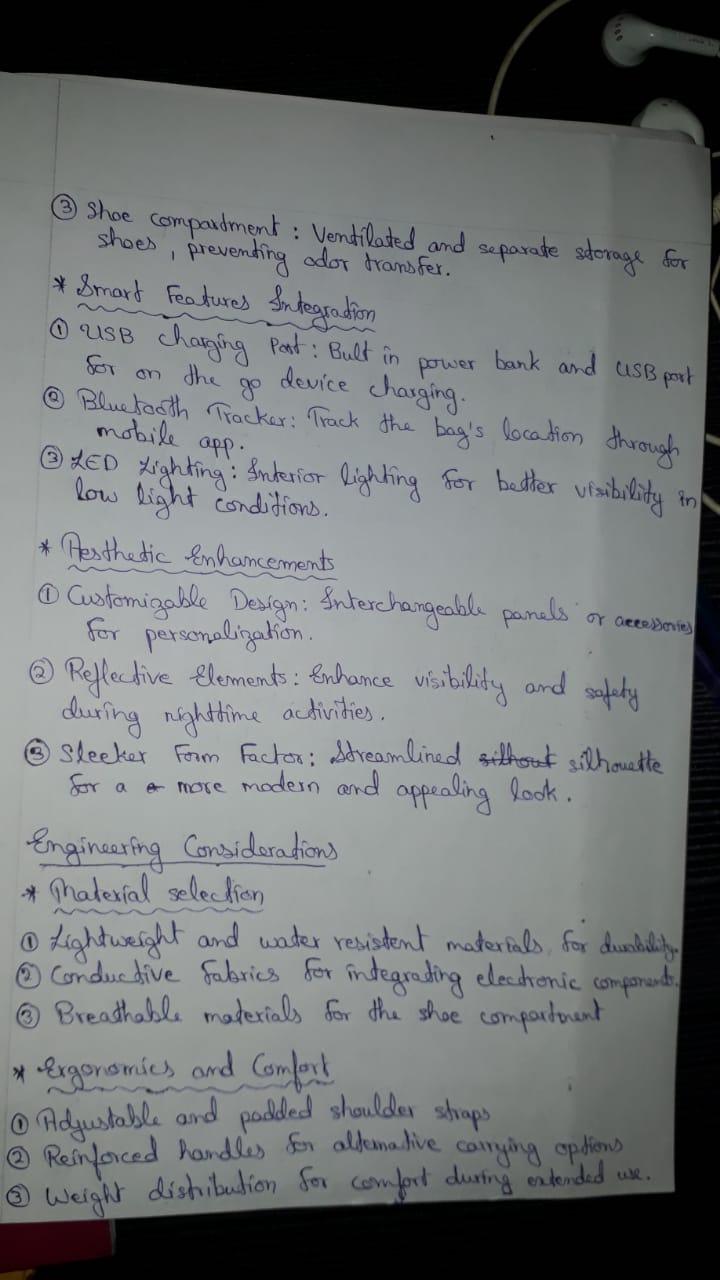 ③ Shoe compartment : Ventilated and separate storage for
shoes, preventing odor transfer.
* Smart Features Integration
① USB charging Port : Bult in power bank and USB port
for on the go device charging.
② Bluetooth Tracker: Track the bag's location through
mobile app.
③ LED Lighting : Interior lighting for better visibility in
low light conditions.
* Aesthetic Enhancements
① Customizable Design: Interchangeable panels or accessories
for personalization.
② Reflective Elements: Enhance visibility and safety
during nighttime activities.
③ Sleeker Form Factor: Streamlined silhout silhouette
for a a more modern and appealing look.
Engineering Considerations
* Material selection
① Lightweight and water resistent materials for durability.
② Conductive fabrics for integrating electronic components.
③ Breathable materials for the shoe compartment
* Ergonomics and Comfort
① Adjustable and padded shoulder straps
② Reinforced handles for alternative carrying options
③ Weight distribution for comfort during extended use.